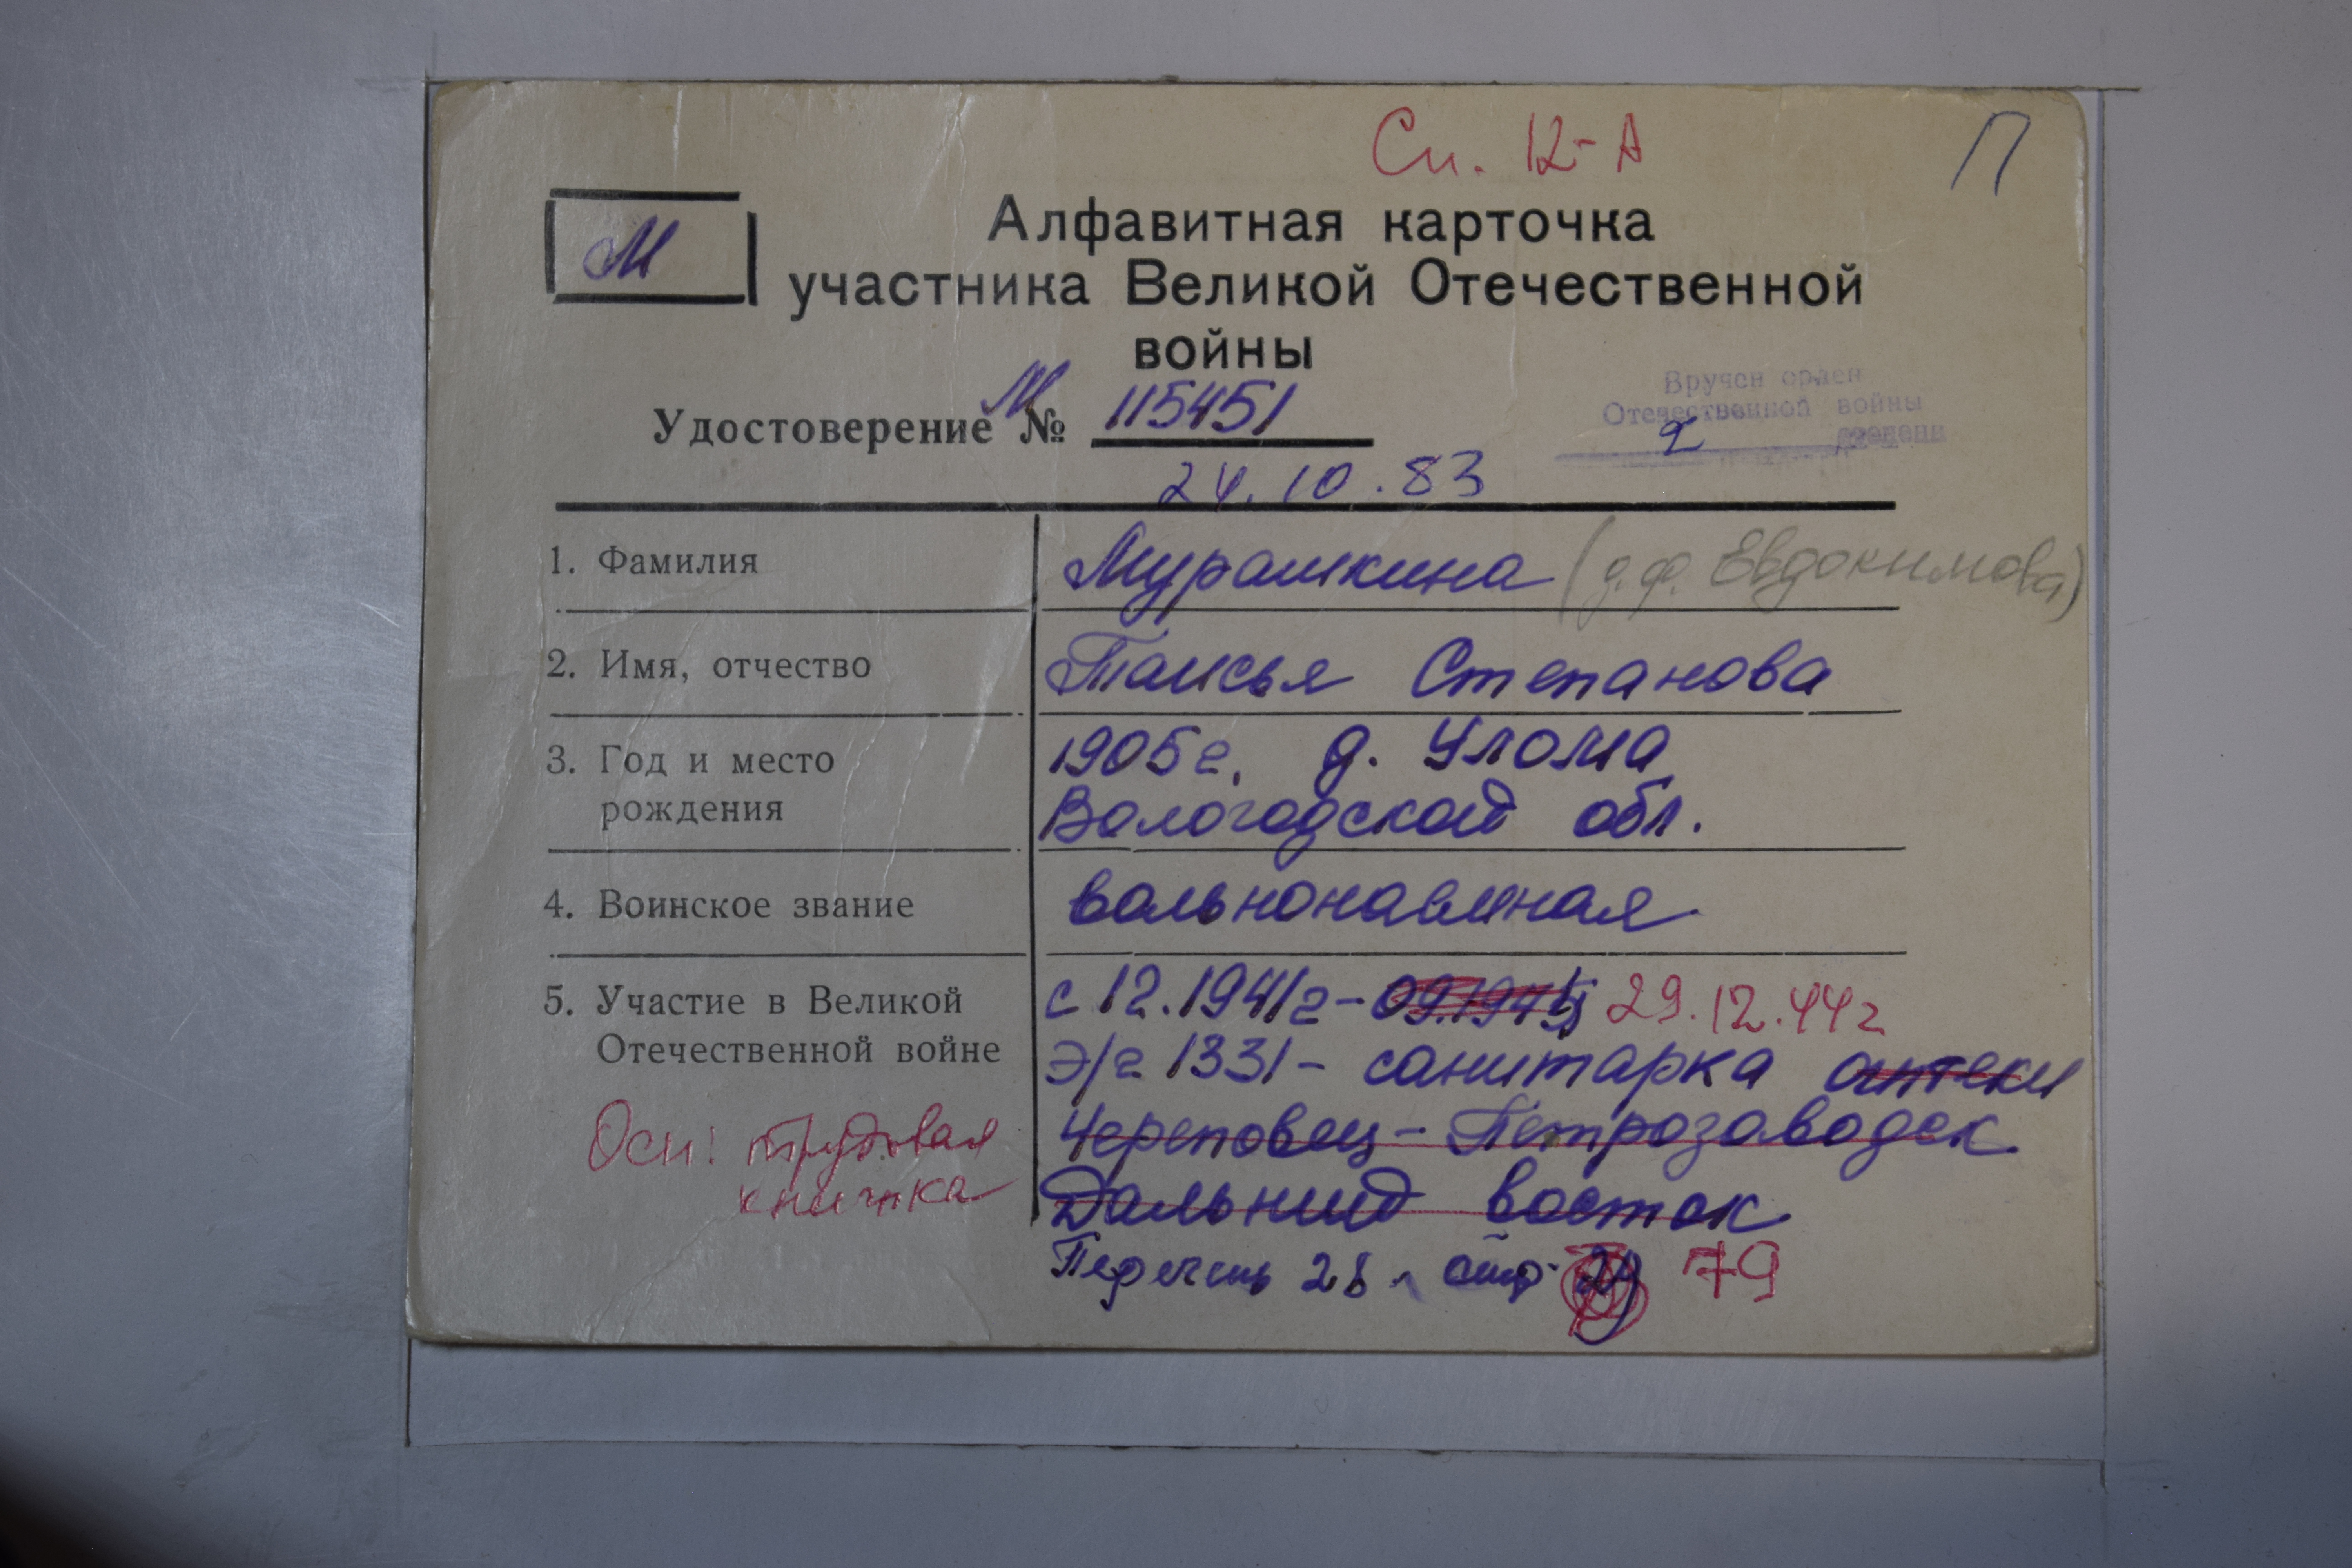 Сп. 12-А
П
М
Алфавитная карточка
участника Великой Отечественной
войны
Удостоверение М № 115451
24.10.83
Вручен орден
Отечественной войны
2 степени
1. Фамилия Мурашкина (д.ф. Евдокимова)
2. Имя, отчество Таисья Степанова
3. Год и место 1905г. д. Улома
рождения Вологодской обл.
4. Воинское звание вольнонаемная
5. Участие в Великой с 12.1941г - 09.194 29.12.44г
Отечественной войне э/г 1331 - санитарка аптеки
Осн: трудовая Череповец - Петрозаводск
книжка Дальний восток
Перечень 28 стр. 79